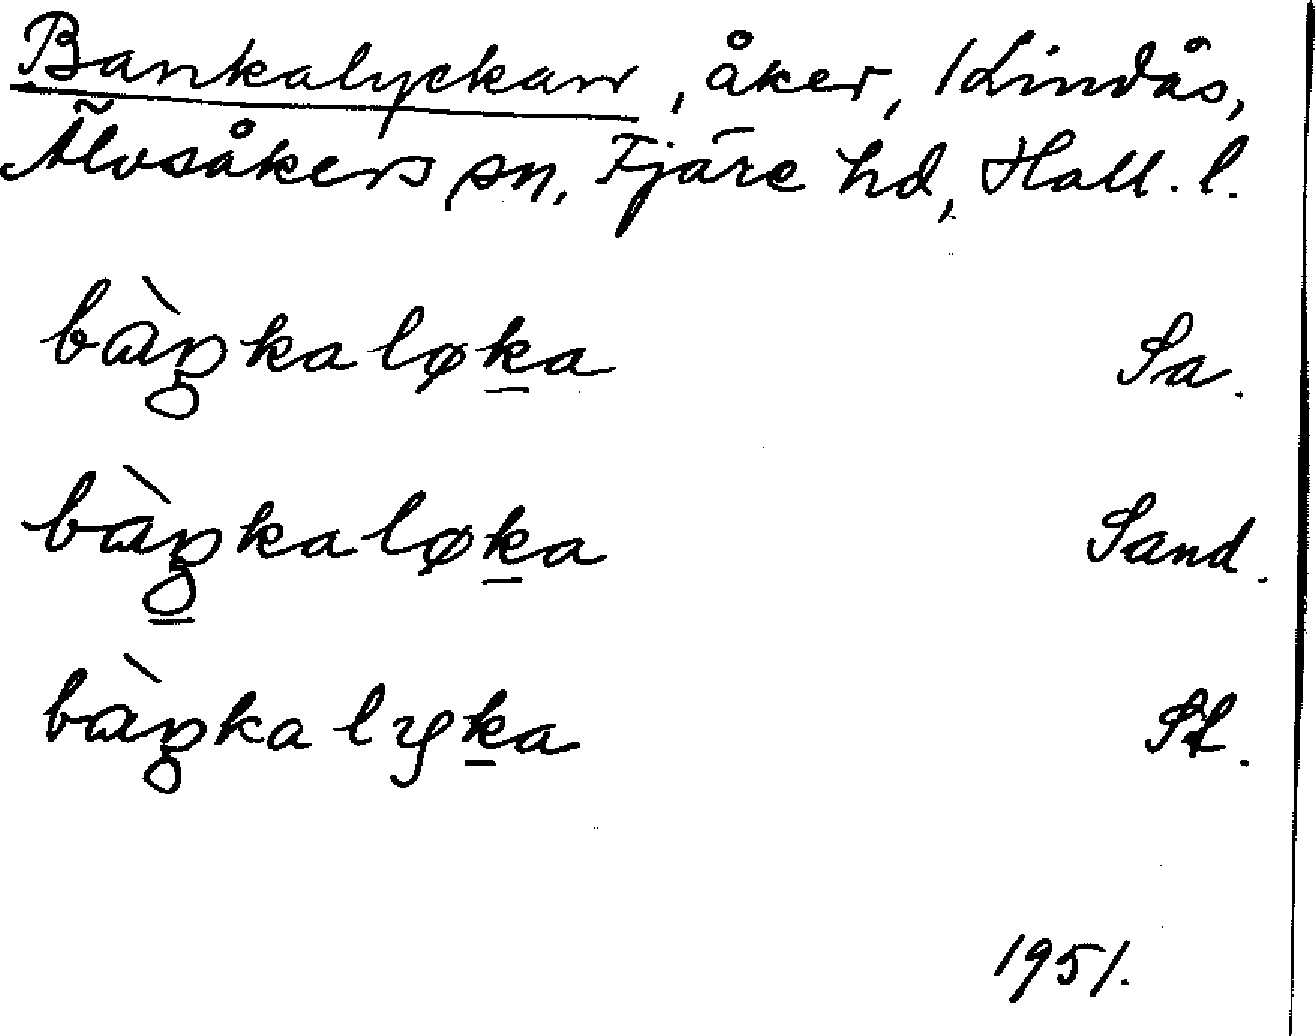 Bankalyckan, åker, 1 Lindås,
Älvsåkers sn, Fjäre hd, Hall. l.
bàŋkaløk̲a Sa.
bàŋ̲kaløk̲a Sand.
bàŋkalyk̲a St.
1951.